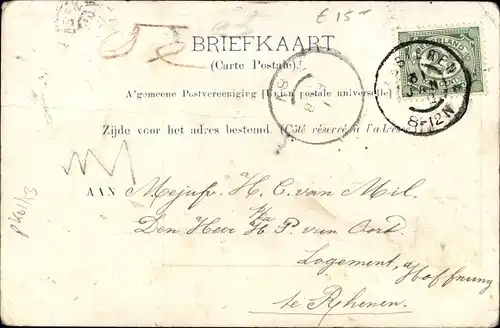 £ 15-
BRIEFKAART
(Carte Postale).
Algemeene Postvereeniging [Union postale universelle]
Zijde voor het adres bestemd. (Côté réservé à l'adresse)
NEDERLAND
8-12V
AAN Mejufr. H. C. van Mil.
p/a
Den Heer H. P. van Oort.
Logement, a/ Hoffnung
te Rhenen.